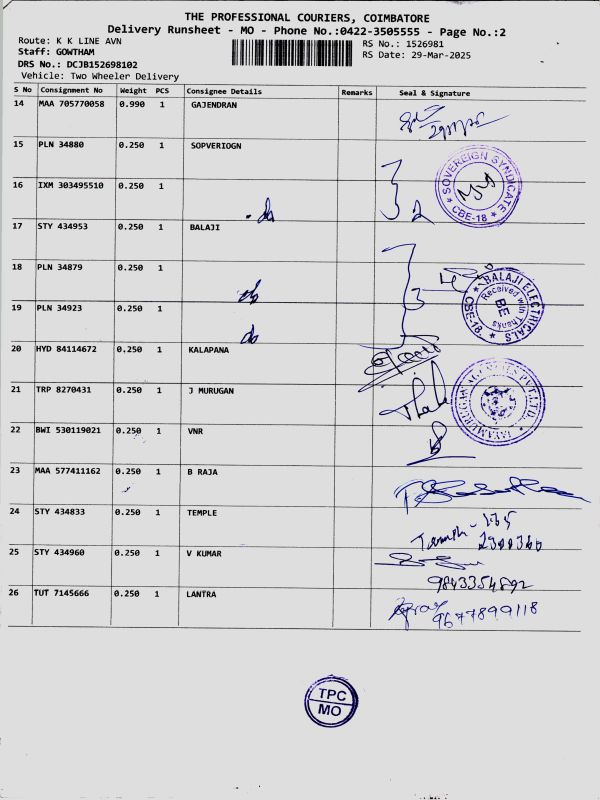 THE PROFESSIONAL COURIERS, COIMBATORE
Delivery Runsheet - MO - Phone No.:0422-3505555 - Page No.:2
Route: K K LINE AVN
Staff: GOWTHAM
DRS No.: DCJB152698102
Vehicle: Two Wheeler Delivery
RS No.: 1526981
RS Date: 29-Mar-2025
S No Consignment No Weight PCS Consignee Details Remarks Seal & Signature
14 MAA 705770058 0.990 1 GAJENDRAN
15 PLN 34880 0.250 1 SOPVERIOGN
SOVEREIGN SYNDICATE
* CBE-18 *
16 IXM 303495510 0.250 1
do
2
17 STY 434953 0.250 1 BALAJI
18 PLN 34879 0.250 1
do
3
BALAJI ELECTRICALS
Received with Thanks
BE
* CBE-18. *
19 PLN 34923 0.250 1
do
20 HYD 84114672 0.250 1 KALAPANA
21 TRP 8270431 0.250 1 J MURUGAN
22 BWI 530119021 0.250 1 VNR
23 MAA 577411162 0.250 1 B RAJA
24 STY 434833 0.250 1 TEMPLE
25 STY 434960 0.250 1 V KUMAR
9843354892
26 TUT 7145666 0.250 1 LANTRA
9677899118
TPC
MO